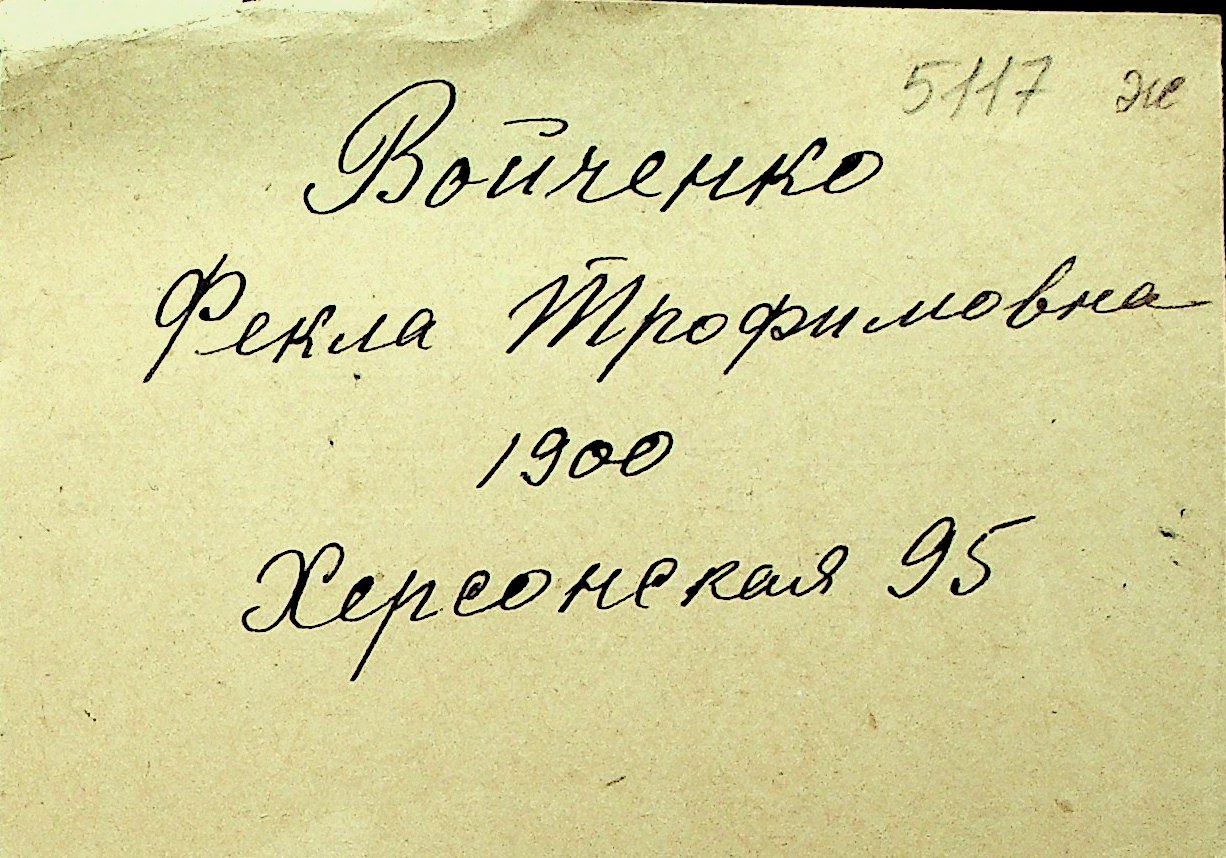 5117 ж
Войченко
Фекла Трофимовна
1900
Херсонская 95